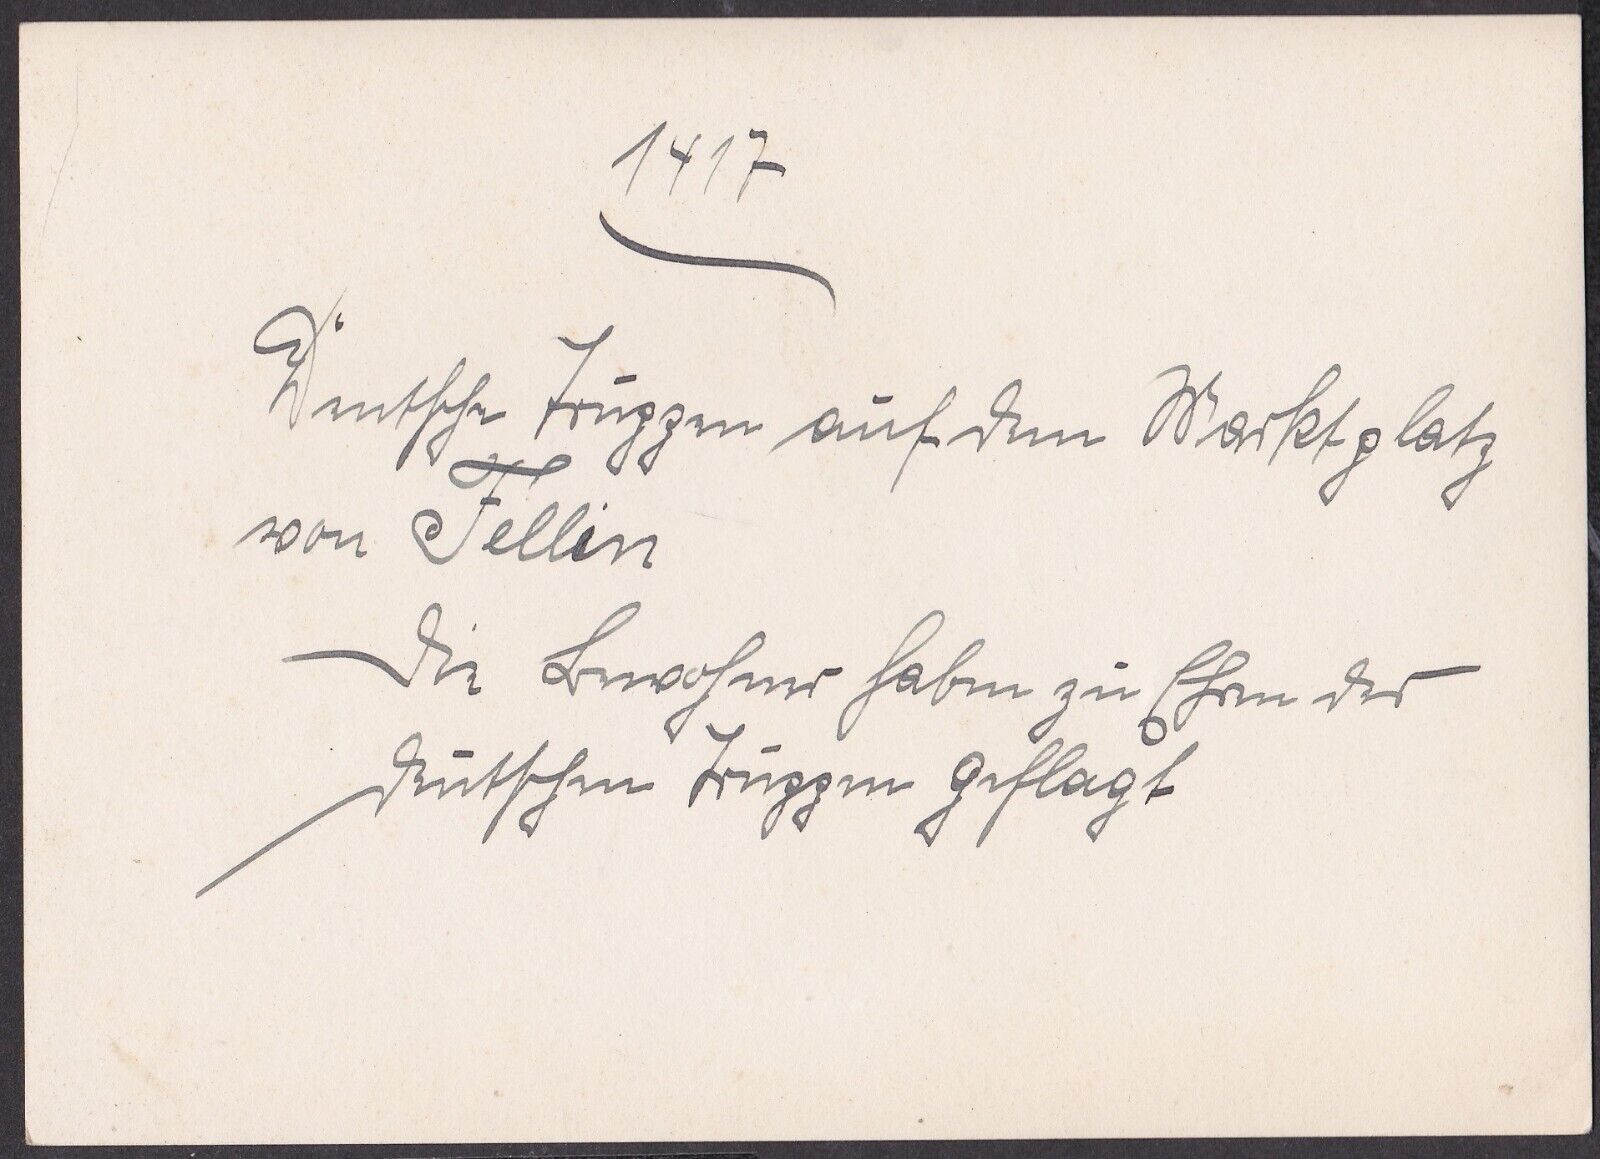 1417
Deutsche Truppen auf dem Marktplatz
von Fellin
Die Bewohner haben zu Ehren der
deutschen Truppen geflagt